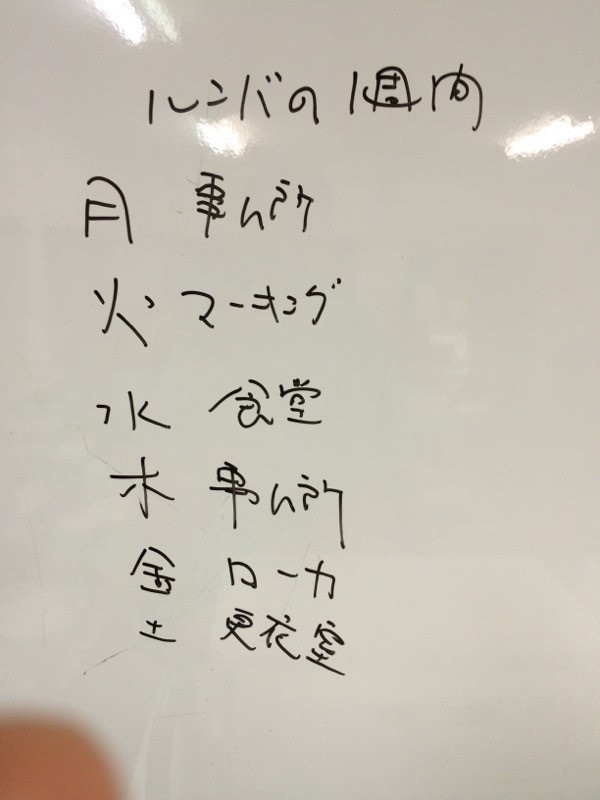 ルンバの1週間
月 事ム所
火 マーキング
水 食堂
木 事ム所
金 ローカ
土 更衣室